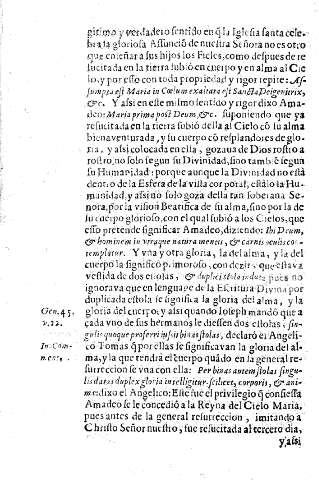 gitimo y verdadero sentido en q̃ la Iglesia santa cele-
bra la gloriosa Assunciõ de nuestra Señora no es otro
que enseñar a sus hijos los Fieles, como despues de re
sucitada en la tierra subiò en cuerpo y en alma al Cie
lo, y por esso con toda propriedad y rigor repite: As-
sumpta est Maria in Cœlum exaltata est Sancta Dei genitrix,
&c. Y assi en este mismo sentido y rigor dixo Ama-
deo: Maria prima post Deum, &c. suponiendo que ya
resucitada en la tierra subiò della al Cielo cõ su alma
bienaventurada, y su cuerpo cõ resplandores de glo-
ria, y assi colocada en ella, gozaua de Dios rostro a
rostro, no solo segun su Divinidad, sino tambiẽ segun
su Humanidad: porque aunque la Divinidad no està
dentro de la Esfera de la vista corporal, estàlo la Hu-
manidad, y assi no solo goza della tan soberana Se-
ñora, por la vision Beatifica de su alma, sino por la de
su cuerpo glorioso, con el qual subiò a los Cielos, que
esso pretende significar Amadeo, diziendo: Ibi Deum,
& hominem in vtraque natura mentis, & carnis oculis con-
templatur. Y vna y otra gloria, la del alma, y la del
cuerpo la significò primoroso, con dezir, que estava
vestida de dos estolas, & duplici stola induta pues no
ignorava que en lenguage de la Escritura Divina por
duplicada estola se significa la gloria del alma, y la
Gen. 45. gloria del cuerpo, y assi quando Ioseph mandò que a
v. 22. cada vno de sus hermanos le diessen dos estolas, sin-
gulis quoque proferri iussit binas stolas, declarò el Angeli-
In Com- co Tomas q̃ por ellas se significavan la gloria del al-
ment. ma, y la que tendrà el cuerpo quãdo en la general re-
surreccion se vna con ella: Per binas autem stolas singu-
lis datas duplex gloria intelligitur scilicet, corporis, & ani-
mæ: dixo el Angelico: Este fue el privilegio q̃ confiessa
Amadeo se le concediò a la Reyna del Cielo Maria,
pues antes de la general resurreccion, imitando a
Christo Señor nuestro, fue resucitada al tercero dia,
y assi